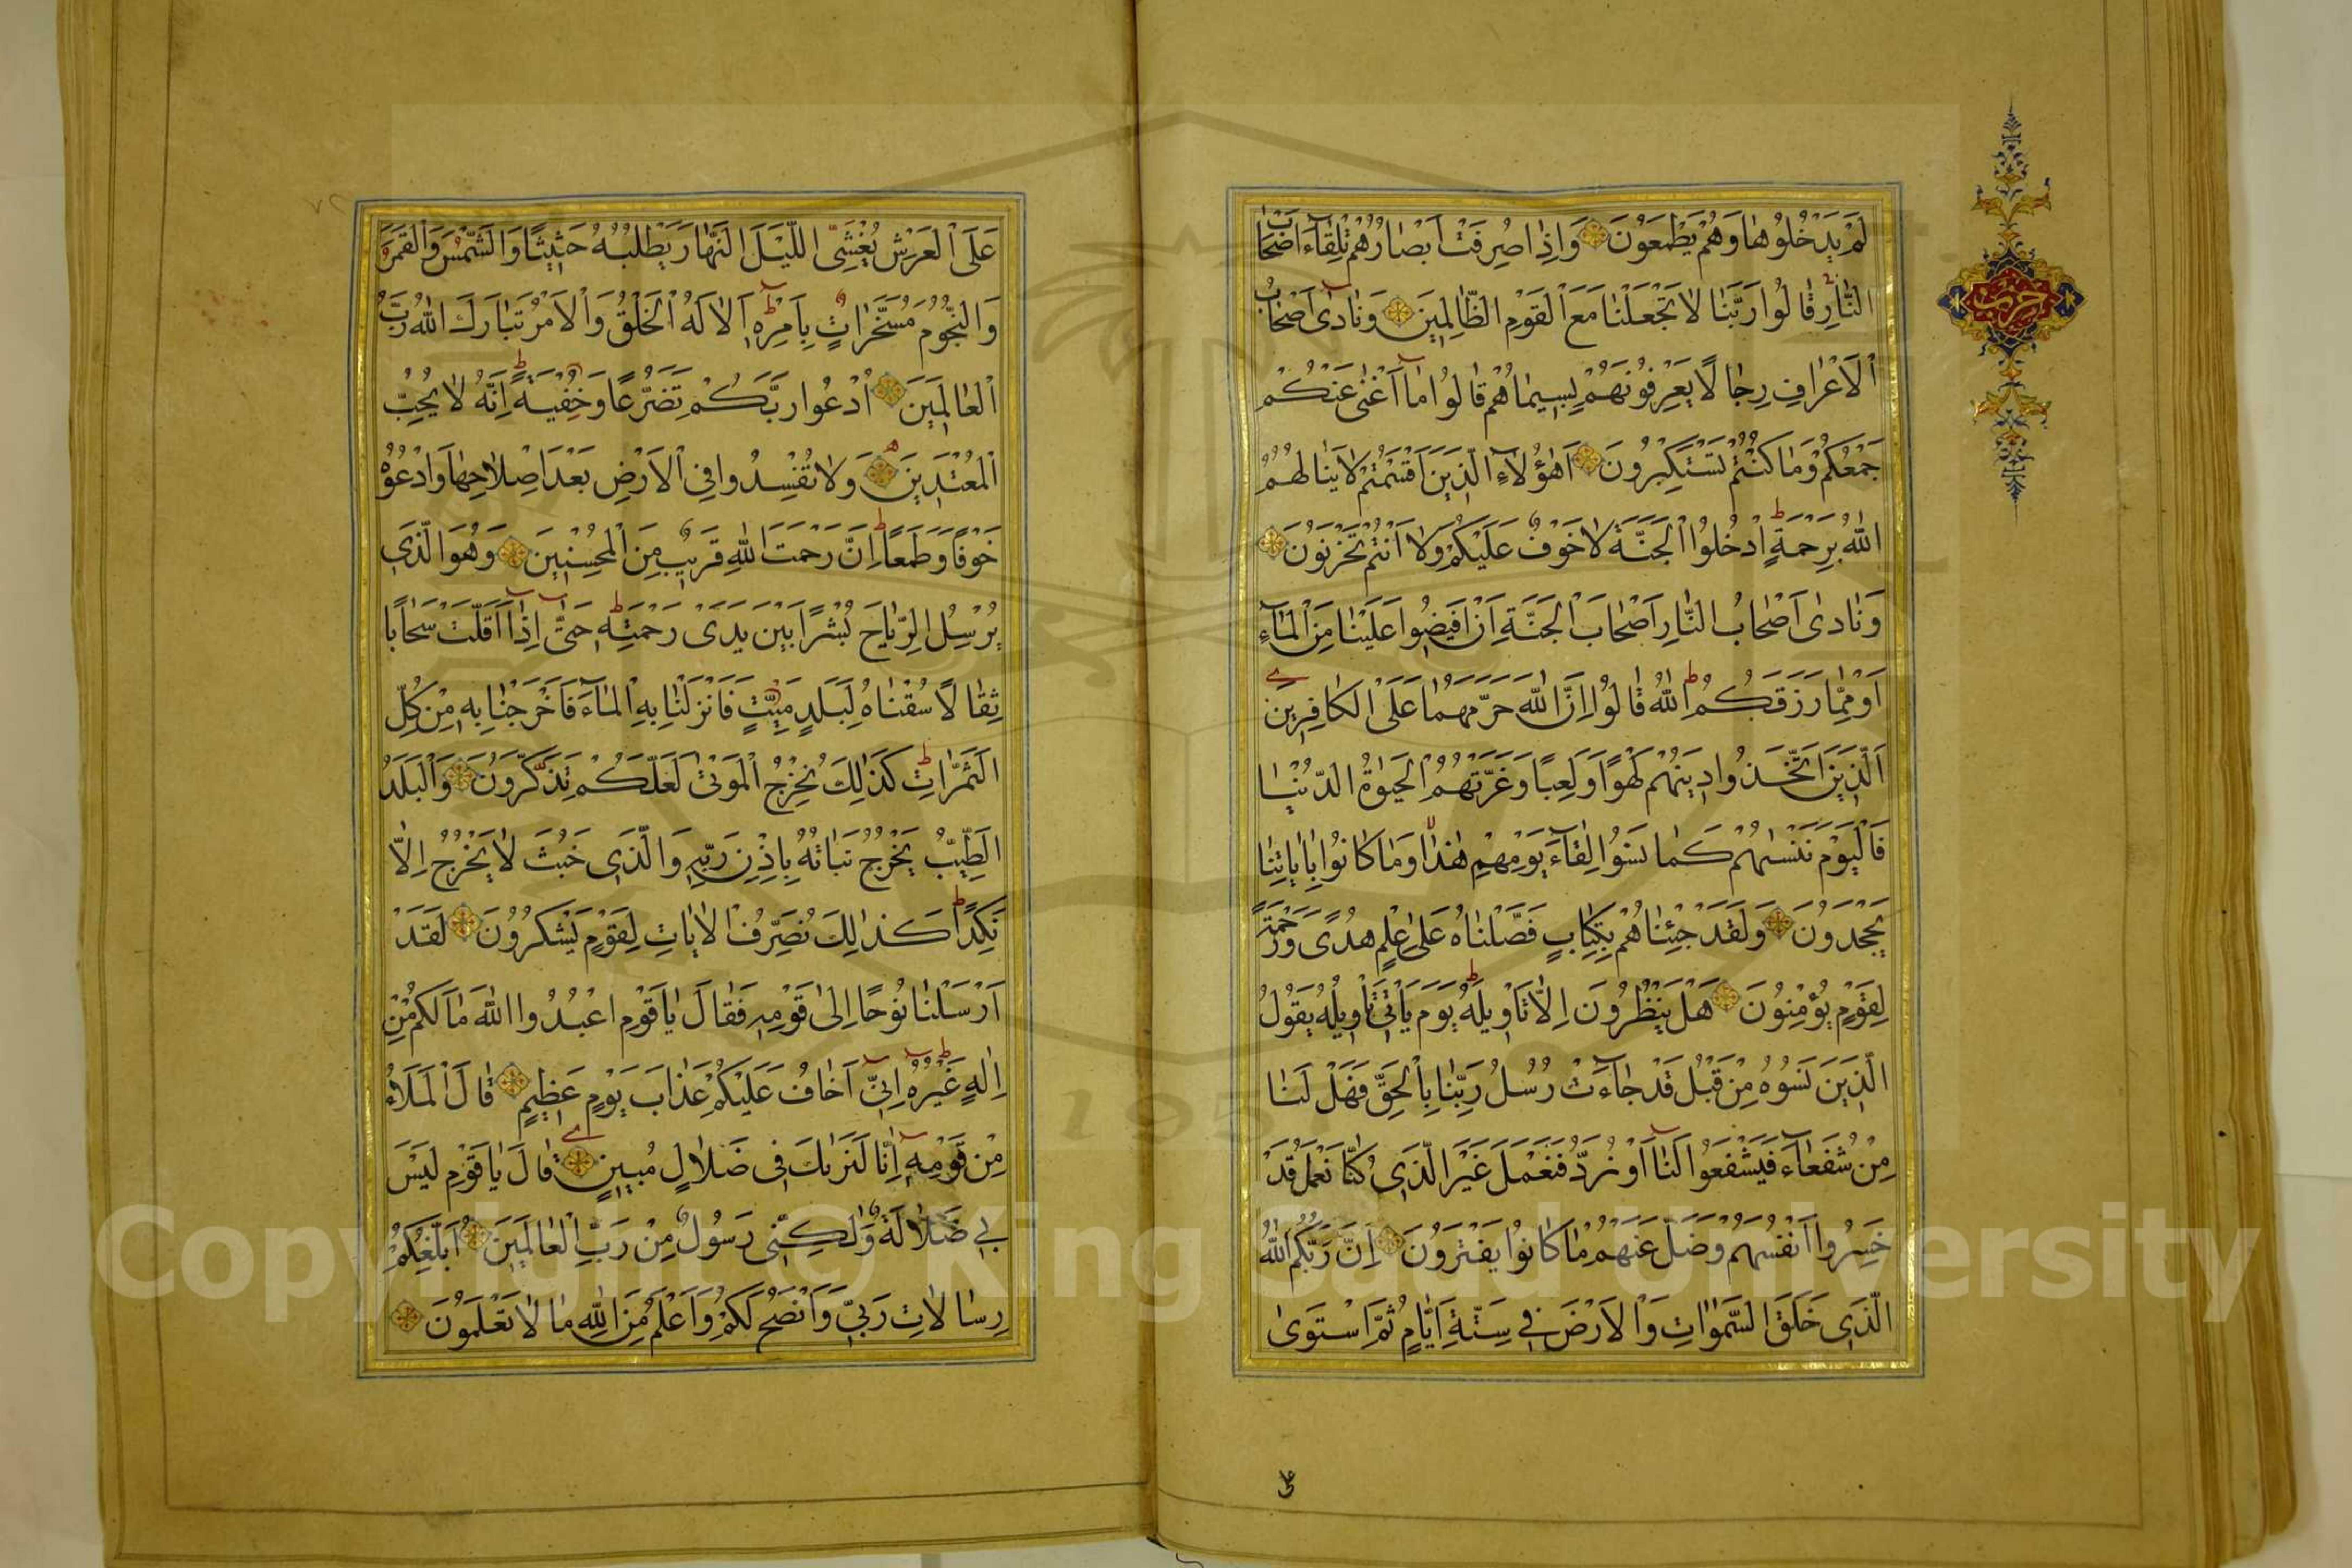 لَمْ يَدْخُلُوهَا وَهُمْ يَطْمَعُونَ وَاِذَا صُرِفَتْ اَبْصَارُهُمْ تِلْقَآءَ اَصْحَابِ
النَّارِ قَالُوا رَبَّنَا لَا تَجْعَلْنَا مَعَ الْقَوْمِ الظَّالِمِينَ وَنَادٰى اَصْحَابُ
الْاَعْرَافِ رِجَالًا يَعْرِفُونَهُمْ بِسِيمَاهُمْ قَالُوا مَا اَغْنٰى عَنْكُمْ
جَمْعُكُمْ وَمَا كُنْتُمْ تَسْتَكْبِرُونَ اَهٰؤُلَآءِ الَّذِينَ اَقْسَمْتُمْ لَا يَنَالُهُمُ
اللّٰهُ بِرَحْمَةٍ اُدْخُلُوا الْجَنَّةَ لَا خَوْفٌ عَلَيْكُمْ وَلَا اَنْتُمْ تَحْزَنُونَ
وَنَادٰى اَصْحَابُ النَّارِ اَصْحَابَ الْجَنَّةِ اَنْ اَفِيضُوا عَلَيْنَا مِنَ الْمَآءِ
اَوْ مِمَّا رَزَقَكُمُ اللّٰهُ قَالُوا اِنَّ اللّٰهَ حَرَّمَهُمَا عَلَى الْكَافِرِينَ
اَلَّذِينَ اتَّخَذُوا دِينَهُمْ لَهْوًا وَلَعِبًا وَغَرَّتْهُمُ الْحَيٰوةُ الدُّنْيَا
فَالْيَوْمَ نَنْسٰيهُمْ كَمَا نَسُوا لِقَآءَ يَوْمِهِمْ هٰذَا وَمَا كَانُوا بِاٰيَاتِنَا
يَجْحَدُونَ وَلَقَدْ جِئْنَاهُمْ بِكِتَابٍ فَصَّلْنَاهُ عَلٰى عِلْمٍ هُدًى وَرَحْمَةً
لِقَوْمٍ يُؤْمِنُونَ هَلْ يَنْظُرُونَ اِلَّا تَاْوِيلَهُ يَوْمَ يَاْتِي تَاْوِيلُهُ يَقُولُ
الَّذِينَ نَسُوهُ مِنْ قَبْلُ قَدْ جَآءَتْ رُسُلُ رَبِّنَا بِالْحَقِّ فَهَلْ لَنَا
مِنْ شُفَعَآءَ فَيَشْفَعُوا لَنَا اَوْ نُرَدُّ فَنَعْمَلَ غَيْرَ الَّذِي كُنَّا نَعْمَلُ قَدْ
خَسِرُوا اَنْفُسَهُمْ وَضَلَّ عَنْهُمْ مَا كَانُوا يَفْتَرُونَ اِنَّ رَبَّكُمُ اللّٰهُ
الَّذِي خَلَقَ السَّمٰوَاتِ وَالْاَرْضَ فِي سِتَّةِ اَيَّامٍ ثُمَّ اسْتَوٰى
على
حزب
عَلَى الْعَرْشِ يُغْشِي اللَّيْلَ النَّهَارَ يَطْلُبُهُ حَثِيثًا وَالشَّمْسَ وَالْقَمَرَ
وَالنُّجُومَ مُسَخَّرَاتٍ بِاَمْرِهِ اَلَا لَهُ الْخَلْقُ وَالْاَمْرُ تَبَارَكَ اللّٰهُ رَبُّ
الْعَالَمِينَ اُدْعُوا رَبَّكُمْ تَضَرُّعًا وَخُفْيَةً اِنَّهُ لَا يُحِبُّ
الْمُعْتَدِينَ وَلَا تُفْسِدُوا فِي الْاَرْضِ بَعْدَ اِصْلَاحِهَا وَادْعُوهُ
خَوْفًا وَطَمَعًا اِنَّ رَحْمَتَ اللّٰهِ قَرِيبٌ مِنَ الْمُحْسِنِينَ وَهُوَ الَّذِي
يُرْسِلُ الرِّيَاحَ بُشْرًا بَيْنَ يَدَيْ رَحْمَتِهِ حَتّٰى اِذَا اَقَلَّتْ سَحَابًا
ثِقَالًا سُقْنَاهُ لِبَلَدٍ مَيِّتٍ فَاَنْزَلْنَا بِهِ الْمَآءَ فَاَخْرَجْنَا بِهِ مِنْ كُلِّ
الثَّمَرَاتِ كَذٰلِكَ نُخْرِجُ الْمَوْتٰى لَعَلَّكُمْ تَذَكَّرُونَ وَالْبَلَدُ
الطَّيِّبُ يَخْرُجُ نَبَاتُهُ بِاِذْنِ رَبِّهِ وَالَّذِي خَبُثَ لَا يَخْرُجُ اِلَّا
نَكِدًا كَذٰلِكَ نُصَرِّفُ الْاٰيَاتِ لِقَوْمٍ يَشْكُرُونَ لَقَدْ
اَرْسَلْنَا نُوحًا اِلٰى قَوْمِهِ فَقَالَ يَا قَوْمِ اعْبُدُوا اللّٰهَ مَا لَكُمْ مِنْ
اِلٰهٍ غَيْرُهُ اِنِّي اَخَافُ عَلَيْكُمْ عَذَابَ يَوْمٍ عَظِيمٍ قَالَ الْمَلَاُ
مِنْ قَوْمِهِ اِنَّا لَنَرٰيكَ فِي ضَلَالٍ مُبِينٍ قَالَ يَا قَوْمِ لَيْسَ
بِي ضَلَالَةٌ وَلٰكِنِّي رَسُولٌ مِنْ رَبِّ الْعَالَمِينَ اُبَلِّغُكُمْ
رِسَالَاتِ رَبِّي وَاَنْصَحُ لَكُمْ وَاَعْلَمُ مِنَ اللّٰهِ مَا لَا تَعْلَمُونَ
Copyright © King Saud University
1957